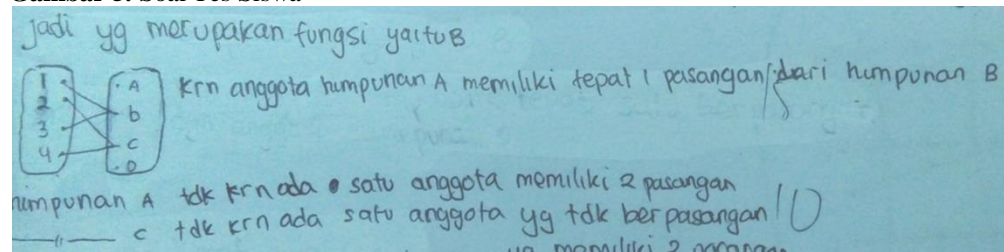 jadi yg merupakan fungsi yaitu B
1 2 3 4
A b c D
krn anggota humpunan A memiliki tepat 1 pasangan dari humpunan B
humpunan A tdk krn ada satu anggota memiliki 2 pasangan
—〃— c tdk krn ada satu anggota yg tdk berpasangan 10
memiliki 2